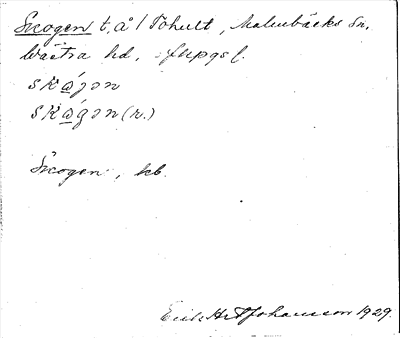 Skogen t, å 1 Tohult, Malmbäcks Sn,
Västra hd,
skωʹjən
skωʹgən (r.)
Skogen, hb.
Erik Johansson 1929.